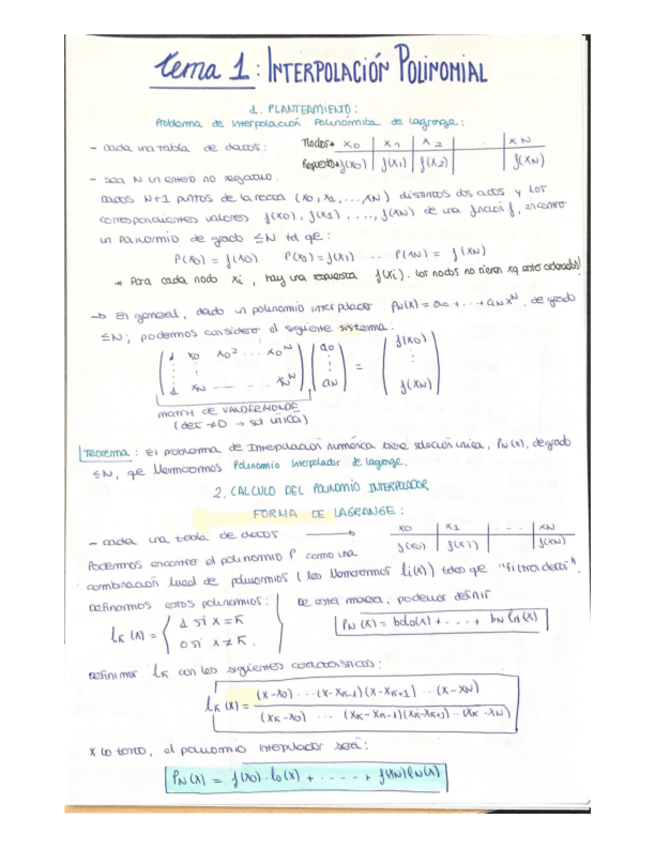 Tema 1: INTERPOLACIÓN POLINOMIAL
1. PLANTEAMIENTO:
Problema de Interpolación Polinómica de Lagrange:
- dada una tabla de datos: Nodos→ x0 | x1 | x2 | . . | xN
Respuesta→ f(x0) | f(x1) | f(x2) | | f(xN)
- sea N un entero no negativo.
dados N+1 puntos de la recta (x0, x1, ..., xN) distintos dos a dos y los
correspondientes valores f(x0), f(x1), ...., f(xN) de una función f, encontrar
un polinomio de grado ≤N tal que:
P(x0) = f(x0) P(x1) = f(x1) ... P(xN) = f(xN)
* Para cada nodo xi, hay una respuesta f(xi). los nodos no tienen xq estar ordenados!
→ En general, dado un polinomio interpolador PN(x) = a0 + ... + aN x^N, de grado
≤N, podemos considerar el siguiente sistema:
( 1 x0 x0² ... x0^N ) ( a0 ) ( f(x0) )
( ⋮ ⋮ ) ( ⋮ ) = ( ⋮ )
( 1 xN ... xN^N ) ( aN ) ( f(xN) )
matriz de VANDERMONDE
(det ≠0 → sol única)
Teorema: El problema de Interpolación numérica tiene solución única, PN(x), de grado
≤N, que llamaremos Polinomio Interpolador de Lagrange.
2. CALCULO DEL POLINOMIO INTERPOLADOR
FORMA DE LAGRANGE:
- dada una tabla de datos → x0 | x1 | - - - | xN
f(x0) | f(x1) | | f(xN)
Podemos encontrar el polinomio P como una
combinación lineal de polinomios (los llamaremos li(x)) tales que "filtra datos".
Definormos estos polinomios: De esta manera, podemos definir
lk(x) = { 1 si x=k
0 si x≠k. }
PN(x) = b0l0(x) + ... + bN lN(x)
Definimos lk con las siguientes características:
lk(x) = (x-x0) ... (x-xk-1)(x-xk+1) ... (x-xN)
(xk-x0) ... (xk-xk-1)(xk-xk+1) ... (xk-xN)
x lo tanto, el polinomio interpolador será:
PN(x) = f(x0)·l0(x) + ..... + f(xN)lN(x)